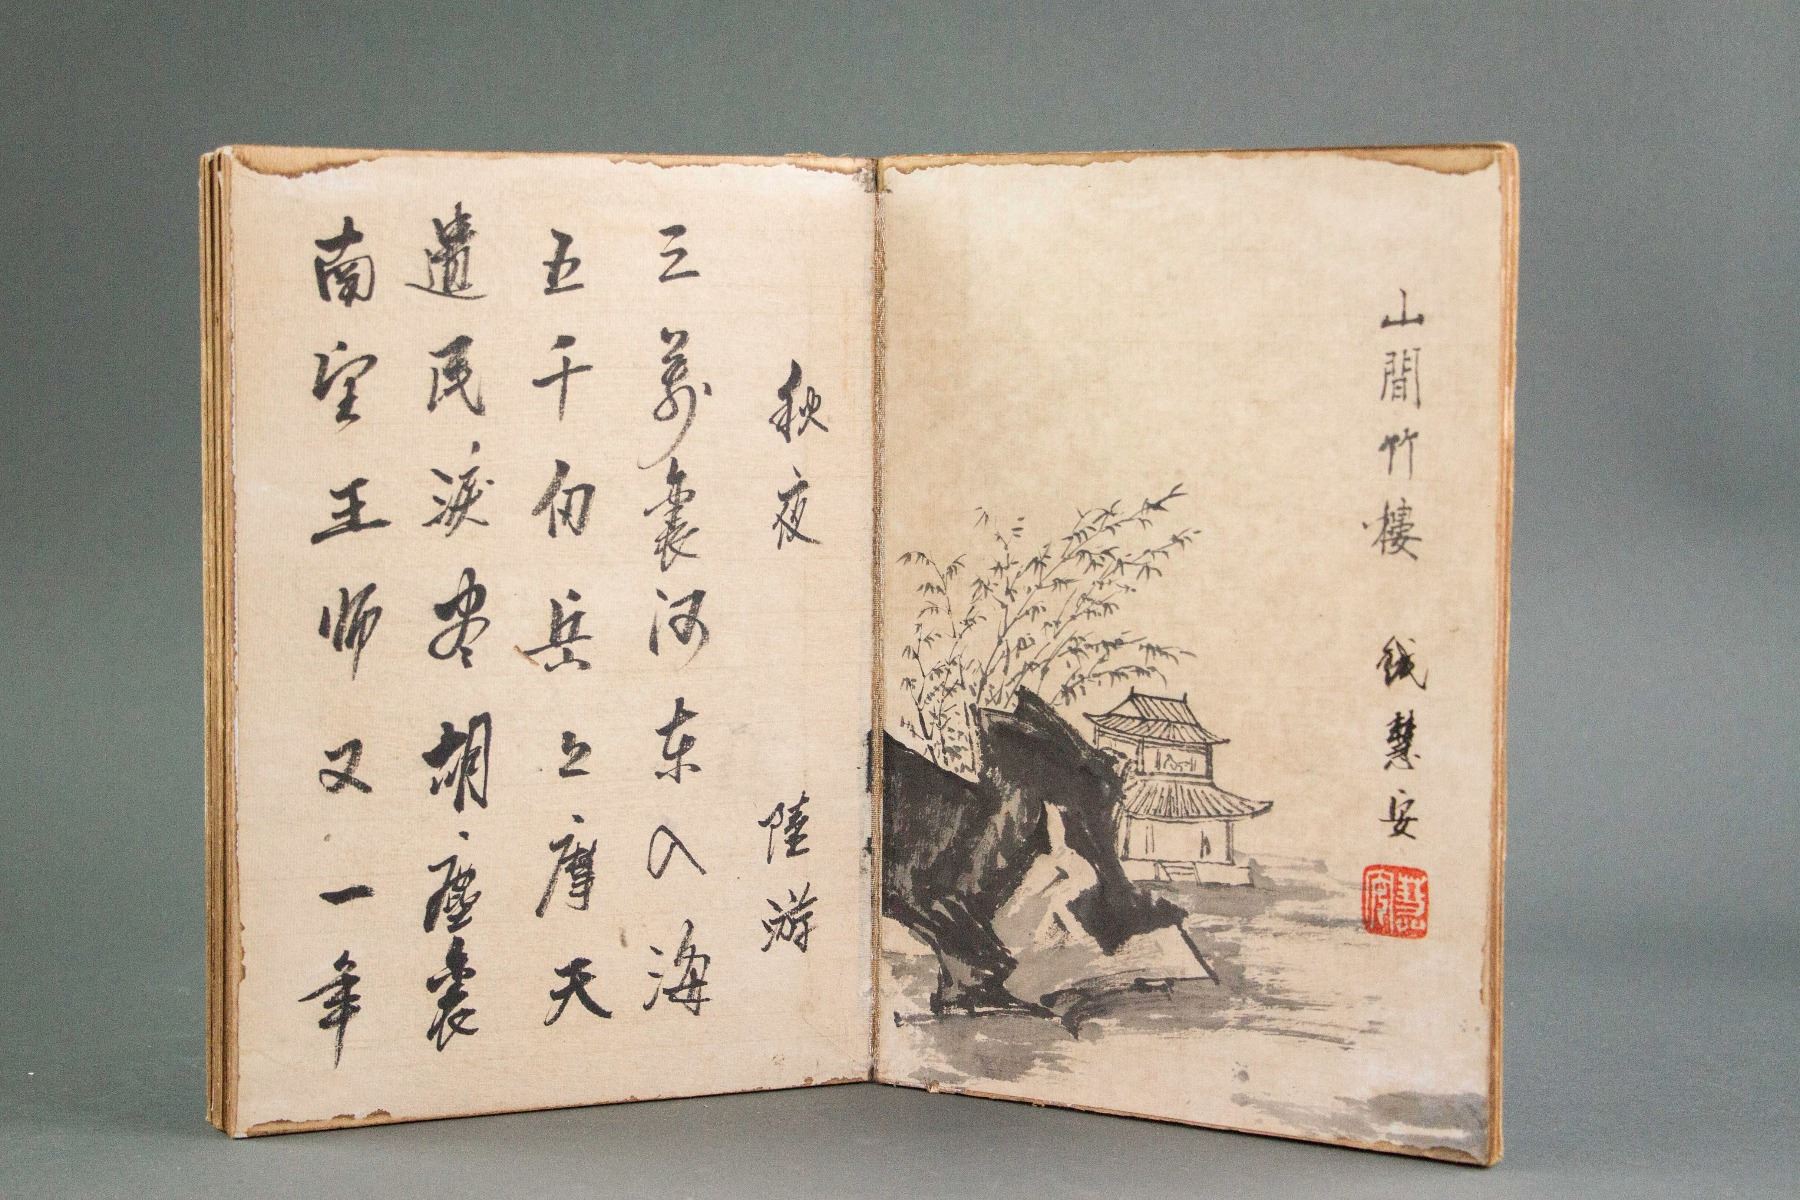 山間竹樓 錢慧安
慧安
秋夜 陸游
三萬裏河東入海
五千仞岳上摩天
遺民淚盡胡塵裏
南望王師又一年